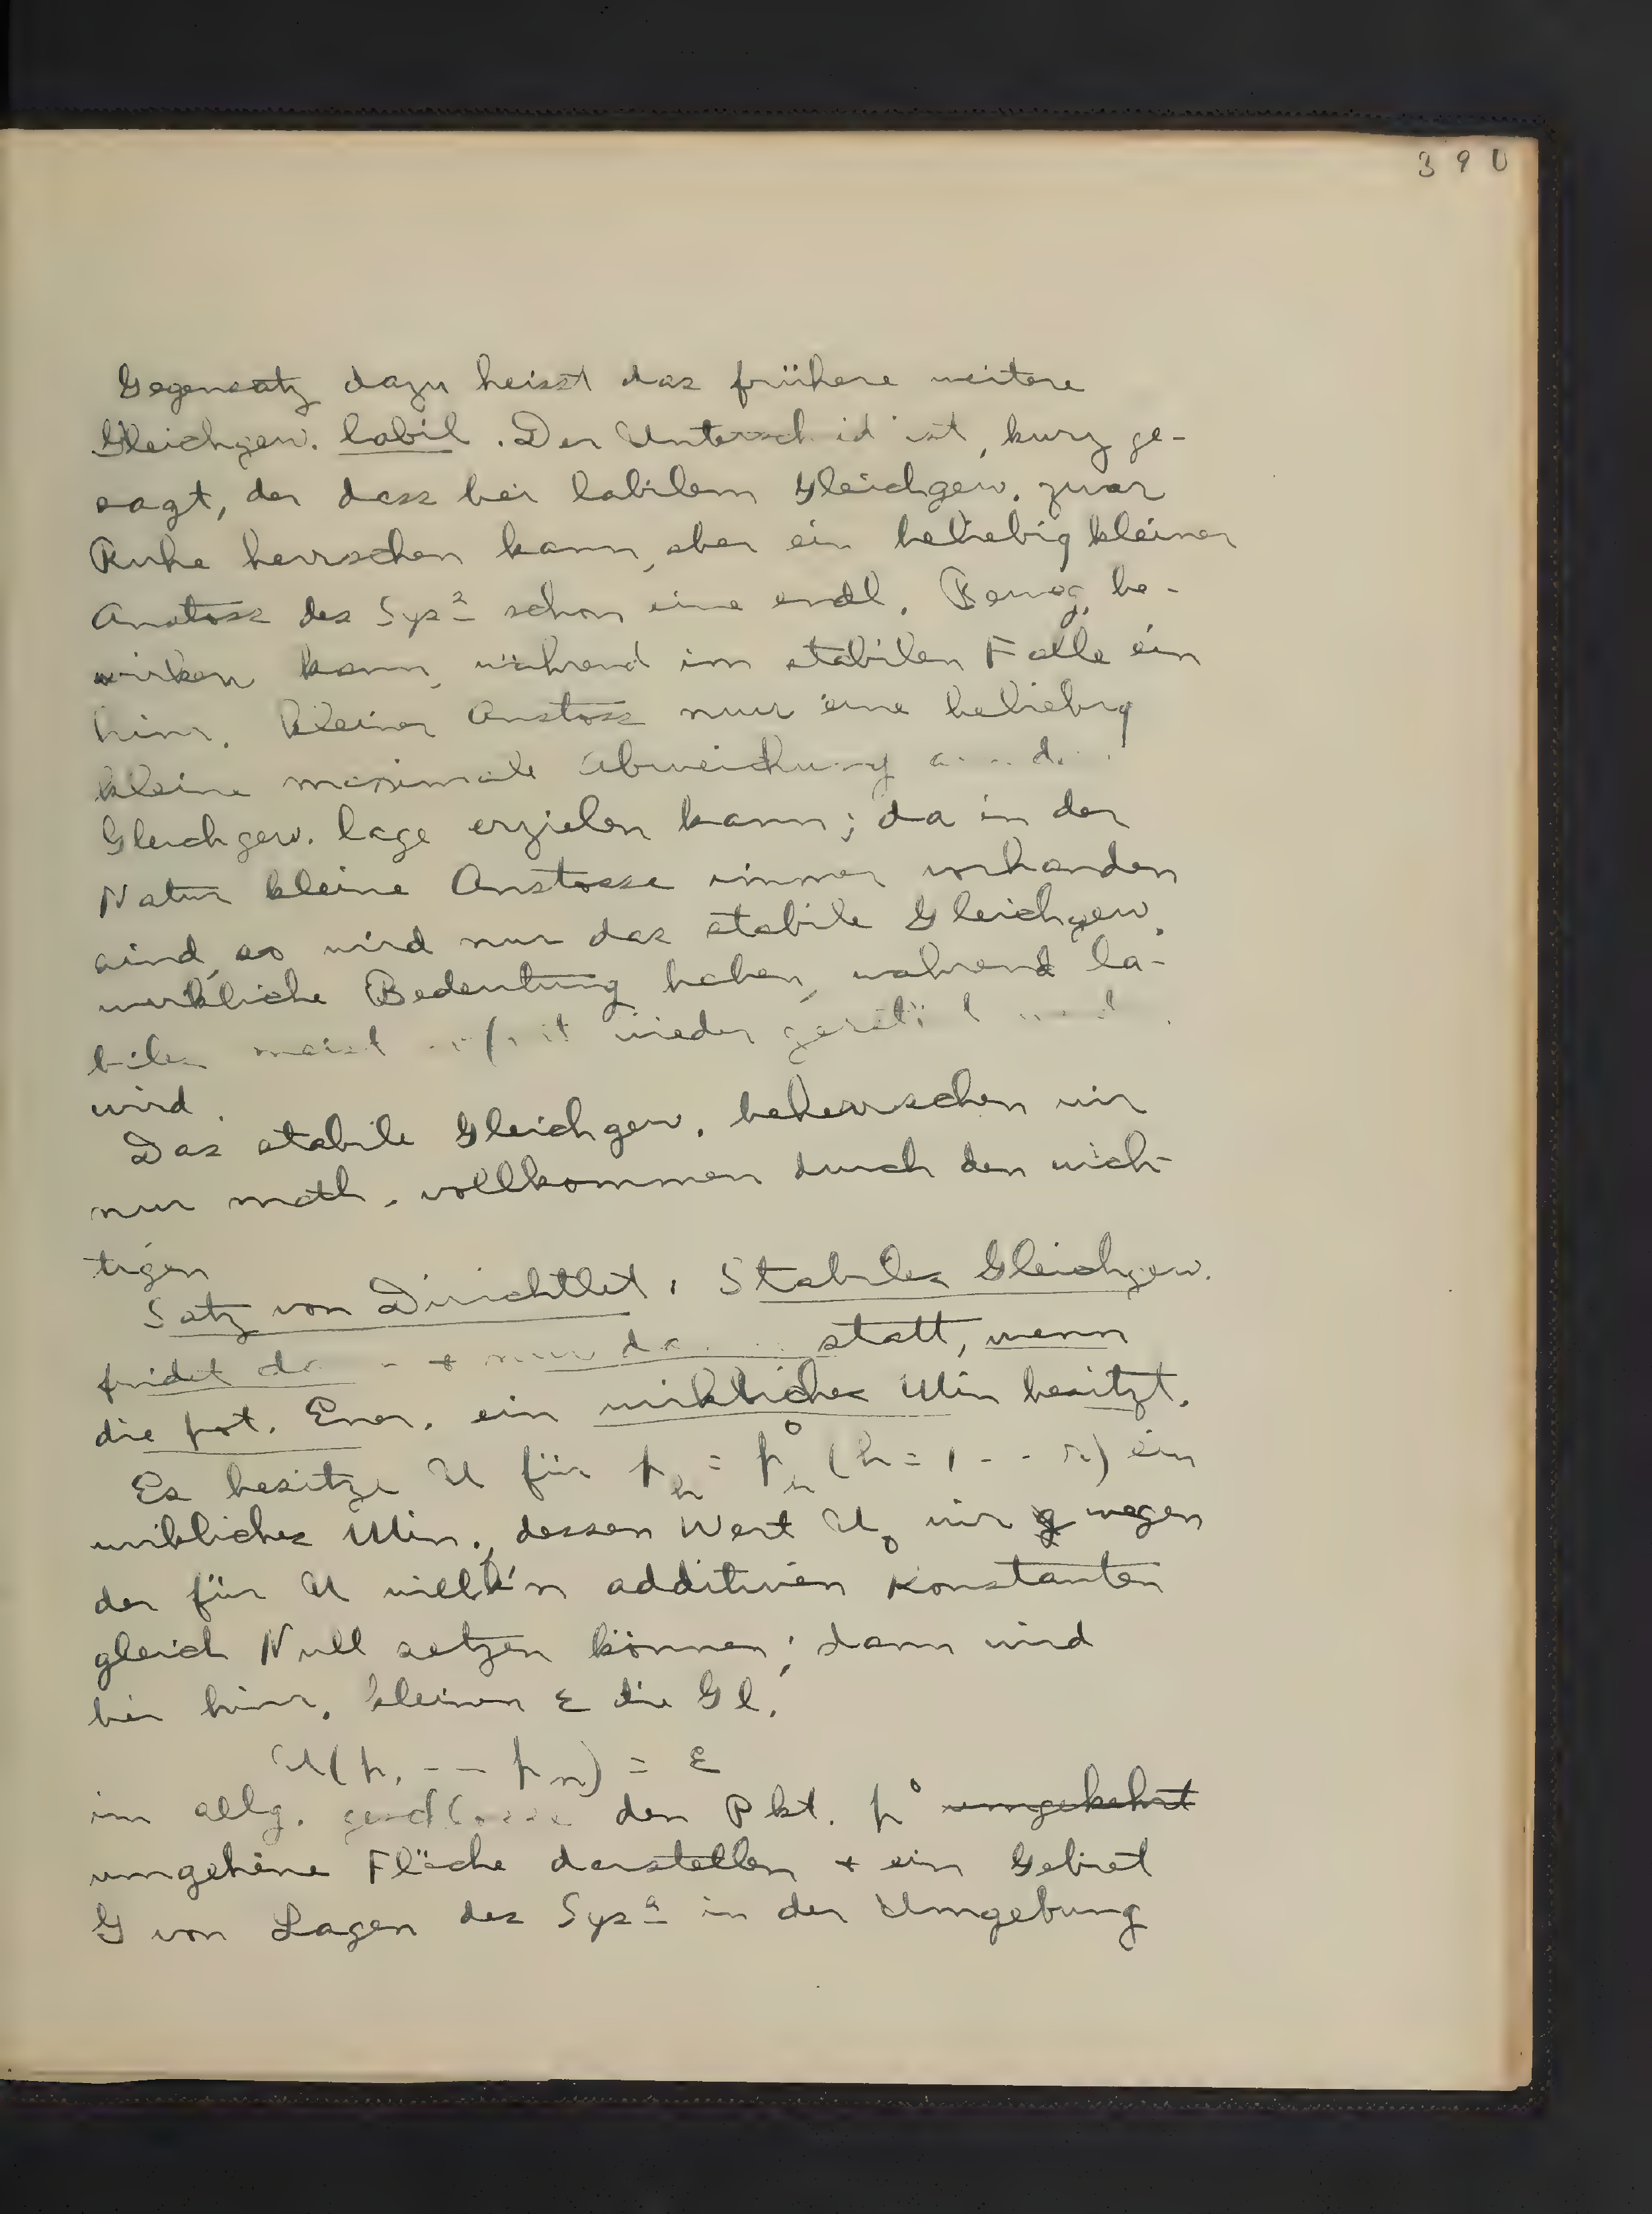 390
Gegensatz dazu heisst das frühere weitere
Gleichgew. labil. Der Untersch id ist, kurz ge-
sagt, der dass bei labilem Gleichgew. zwar
Ruhe herrschen kann, aber ein beliebig kleiner
Anstoss des Sys<sup>s</sup> schon eine endl. Beweg. be-
wirken kann, während im stabilen Falle ein
hinr. kleiner Anstoss nur eine beliebig
kleine maximale Abweichung
Gleichgew. lage erzielen kann; da in der
Natur kleine Anstosse immer vorhanden
sind, so wird nur das stabile Gleichgew.
wirkliche Bedeutung haben, während la-
biles meist wieder
wird.
Das stabile Gleichgew. beherrschen wir
nur math. vollkommen durch den wich-
tigen
Satz von Dirichtlet: Stabiles Gleichgew.
findet da + nur da statt, wenn
die pot. Ener. ein wirkliches Min besitzt.
Es besitze U für p_h = p_h^0 (h = 1 -- n) ein
wirkliches Min., dessen Wert U_0 wir wegen
der für U willk'n additiven Konstanten
gleich Null setzen können; dann wird
bei hinr. kleinen ε die Gl.
U(p_1 -- p_n) = ε
im allg. den Pkt. p^0 ~~umgekehrt~~
umgebene Fläche darstellen + ein Gebiet
G von Lagen des Sys<sup>s</sup> in der Umgebung